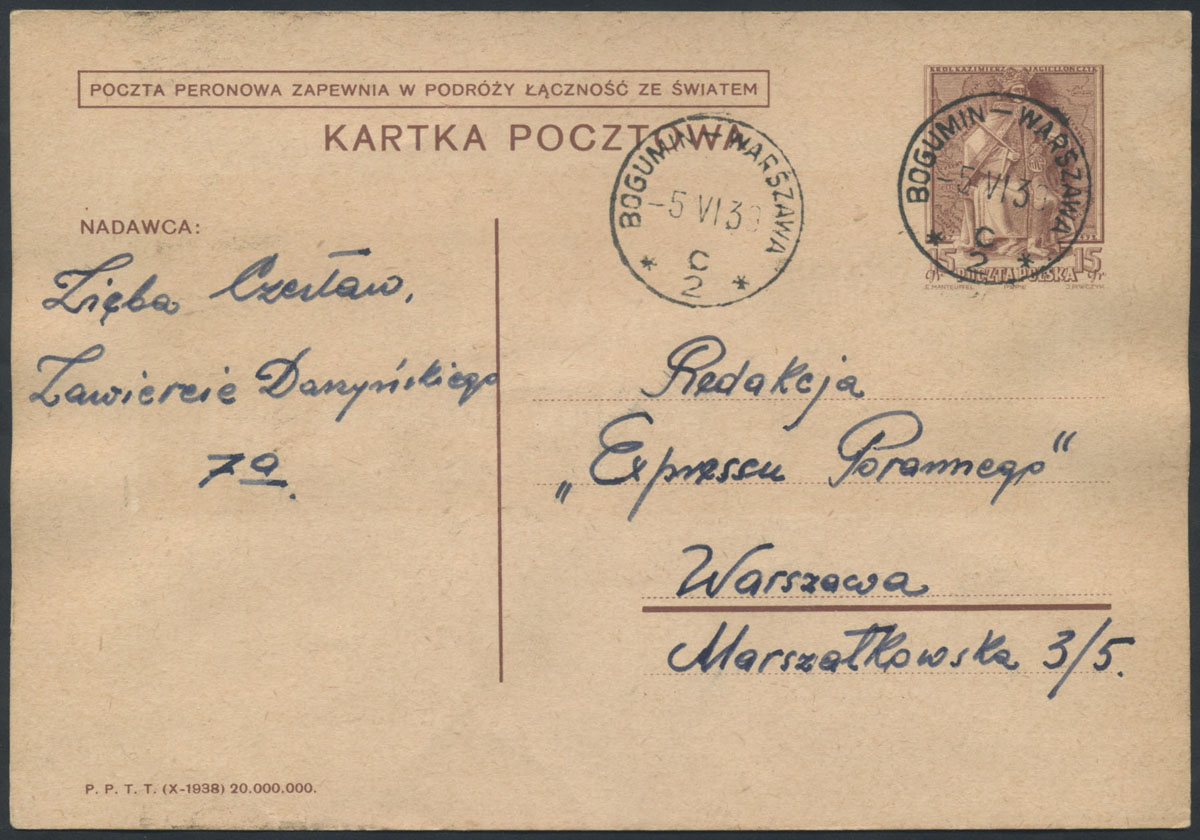 POCZTA PERONOWA ZAPEWNIA W PODRÓŻY ŁĄCZNOŚĆ ZE ŚWIATEM
KARTKA POCZTOWA
KRÓL KAZIMIERZ JAGIELLOŃCZYK
15 15
gr POCZTA POLSKA gr
BOGUMIN – WARSZAWA
-5 VI 39
* C *
2
BOGUMIN – WARSZAWA
-5 VI 39
* C *
2
NADAWCA:
Zięba Czesław,
Zawiercie Daszyńskiego
7a.
Redakcja
„Expressu Porannego"
Warszawa
Marszałkowska 3/5.
P. P. T. T. (X-1938) 20.000.000.